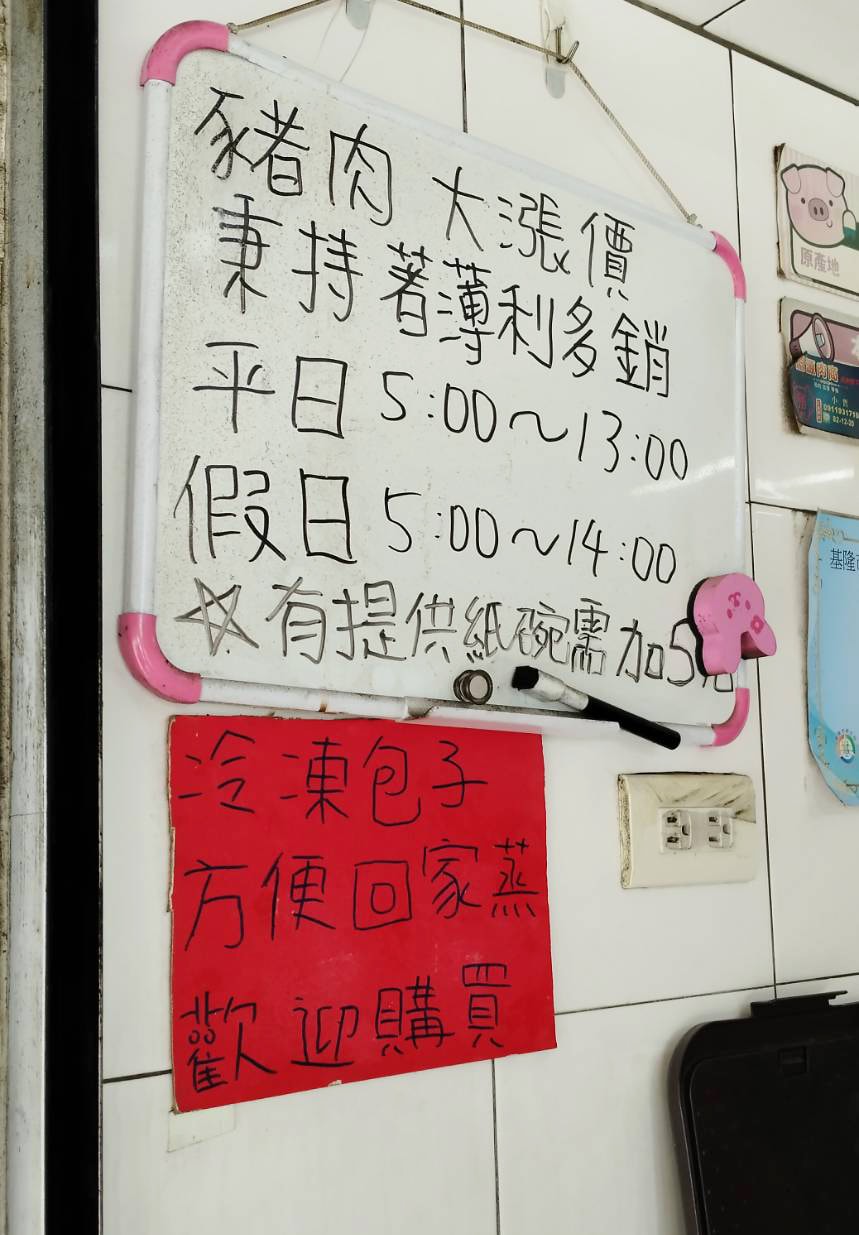 豬肉 大漲價
秉持著薄利多銷
平日 5:00~13:00
假日 5:00~14:00
☆有提供紙碗需加5元
冷凍包子
方便回家蒸
歡迎購買
原產地
小
0911931719
基隆市